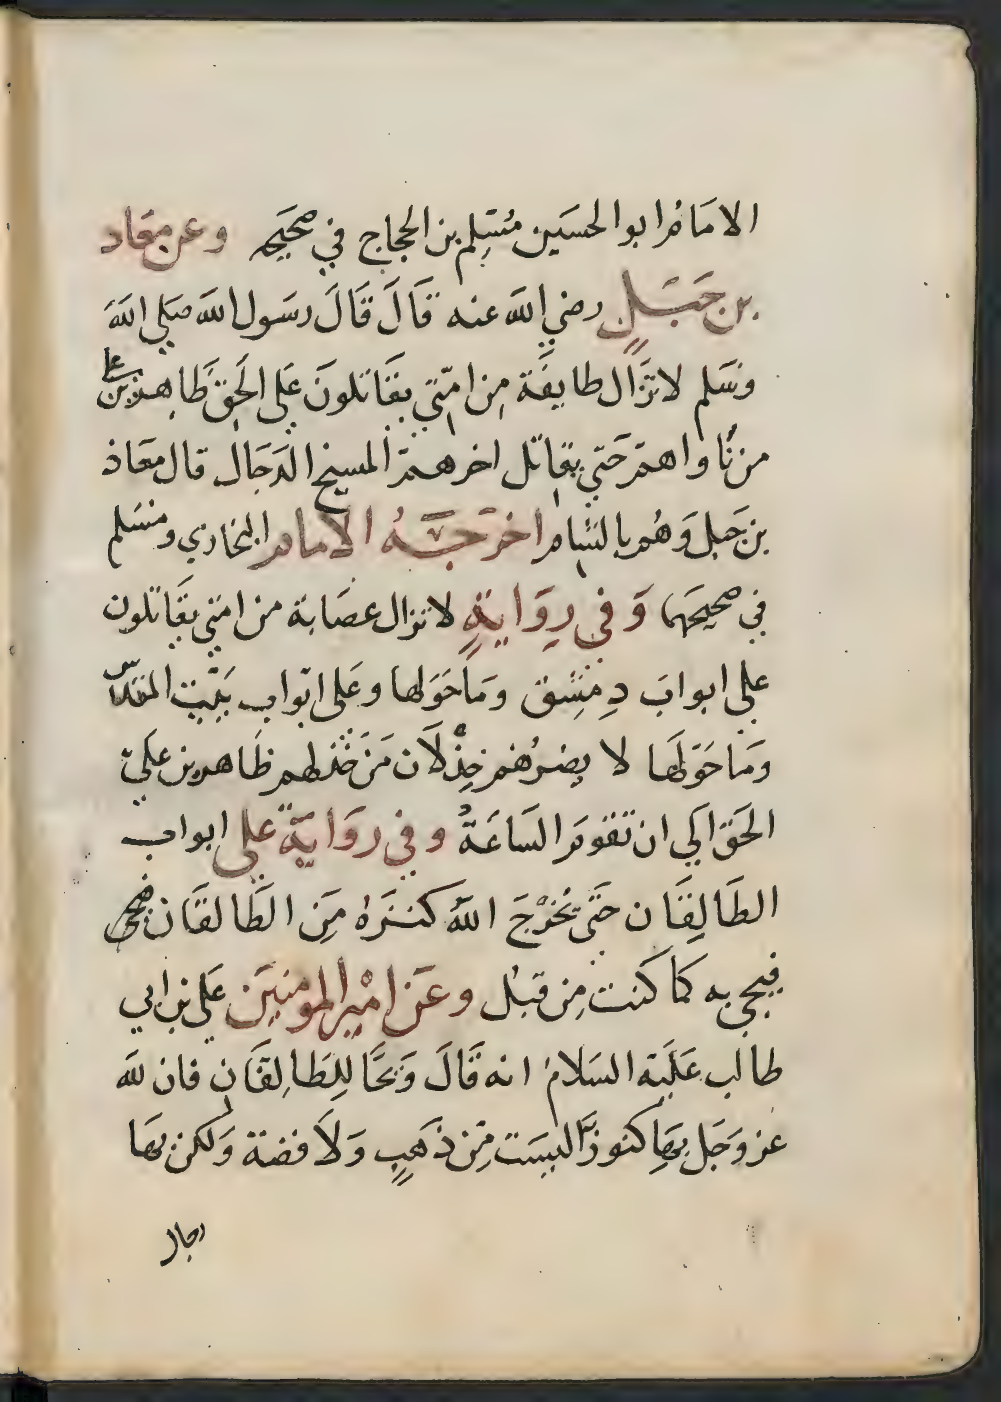 الامَامُ ابو الحسَين مُسْلِم بن الحجاج في صحِيحِه وعن معَاد
بن جَبَلٍ رضي الله عنه قَالَ قَالَ رسَول الله صَلي اللهَ
وسَلم لا تزَال طايفَة مِن امّتي يقَاتلونَ عَلي الحَق ظَاهرين علي
من نَّاواهم حَتي يقاتل اخرهم المسيح الدَجَال قال معَاذ
بن جَبل وَهُم بالشام اخرَجَهُ الامام البخاري ومسَلم
في صحيحَهما وَفي رِوَايةٍ لا تزال عصَابة من امتي يقَاتلون
علي ابوابَ دِمَشِق ومَا حَولها وعَلى ابوَاب بَيْت المقدس
ومَا حَوَلهَا لا يضرُهم خِذْلَان مَن خَذلهم ظَاهرين عَليَ
الحَق الَي ان تقومَ السَاعَةُ وفي روَايةً علي ابواب
الطَالِقَان حَتَى يُخرْجَ اللهُ كنزَهُ مِنَ الطَالقَان
فيحي به كَما كَنت مِن قَبُل وعَن امْير المومنِين عَلي بن ابي
طالب عَلَيَه السَلامُ انه قَالَ وَيحًا لِلطَالِقَان فان لله
عز وَجَل بِهَا كنوزًا ليسَت مِن ذَهَبٍ وَلَا فضة وَلكن بهَا
رجال